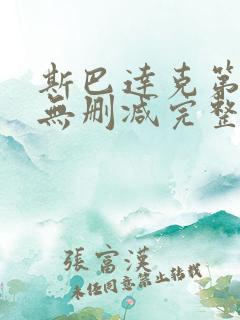 斯巴達克第
無删减完整
張富漢
未经同意禁止转载